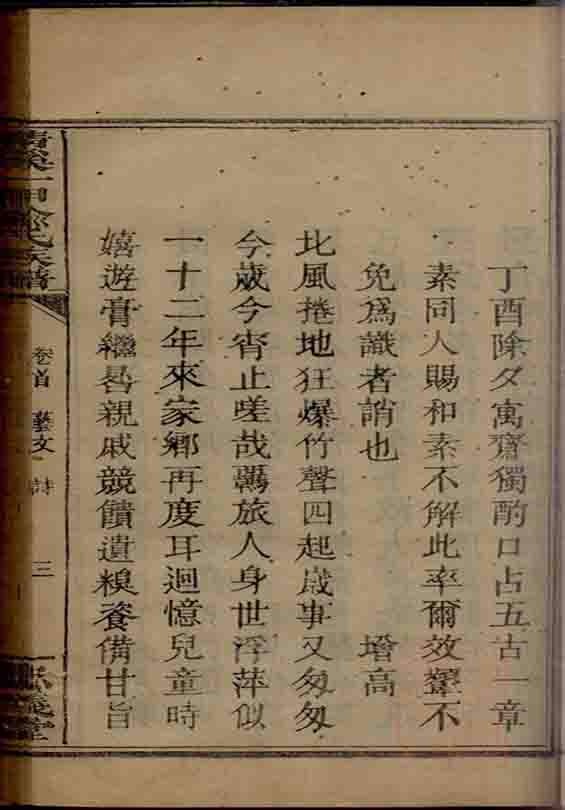 丁酉除夕寓齋獨酌口占五古一章
素同人賜和素不解此率爾效顰不
免為識者誚也　增高
北風捲地狂爆竹聲四起歲事又匆匆
今歲今宵止嗟哉羈旅人身世浮萍似
一十二年來家鄉再度耳迴憶兒童時
嬉遊膏繼晷親戚競饋遺糗餈備甘旨
氏族譜
卷首
藝文
詩
三
義堂